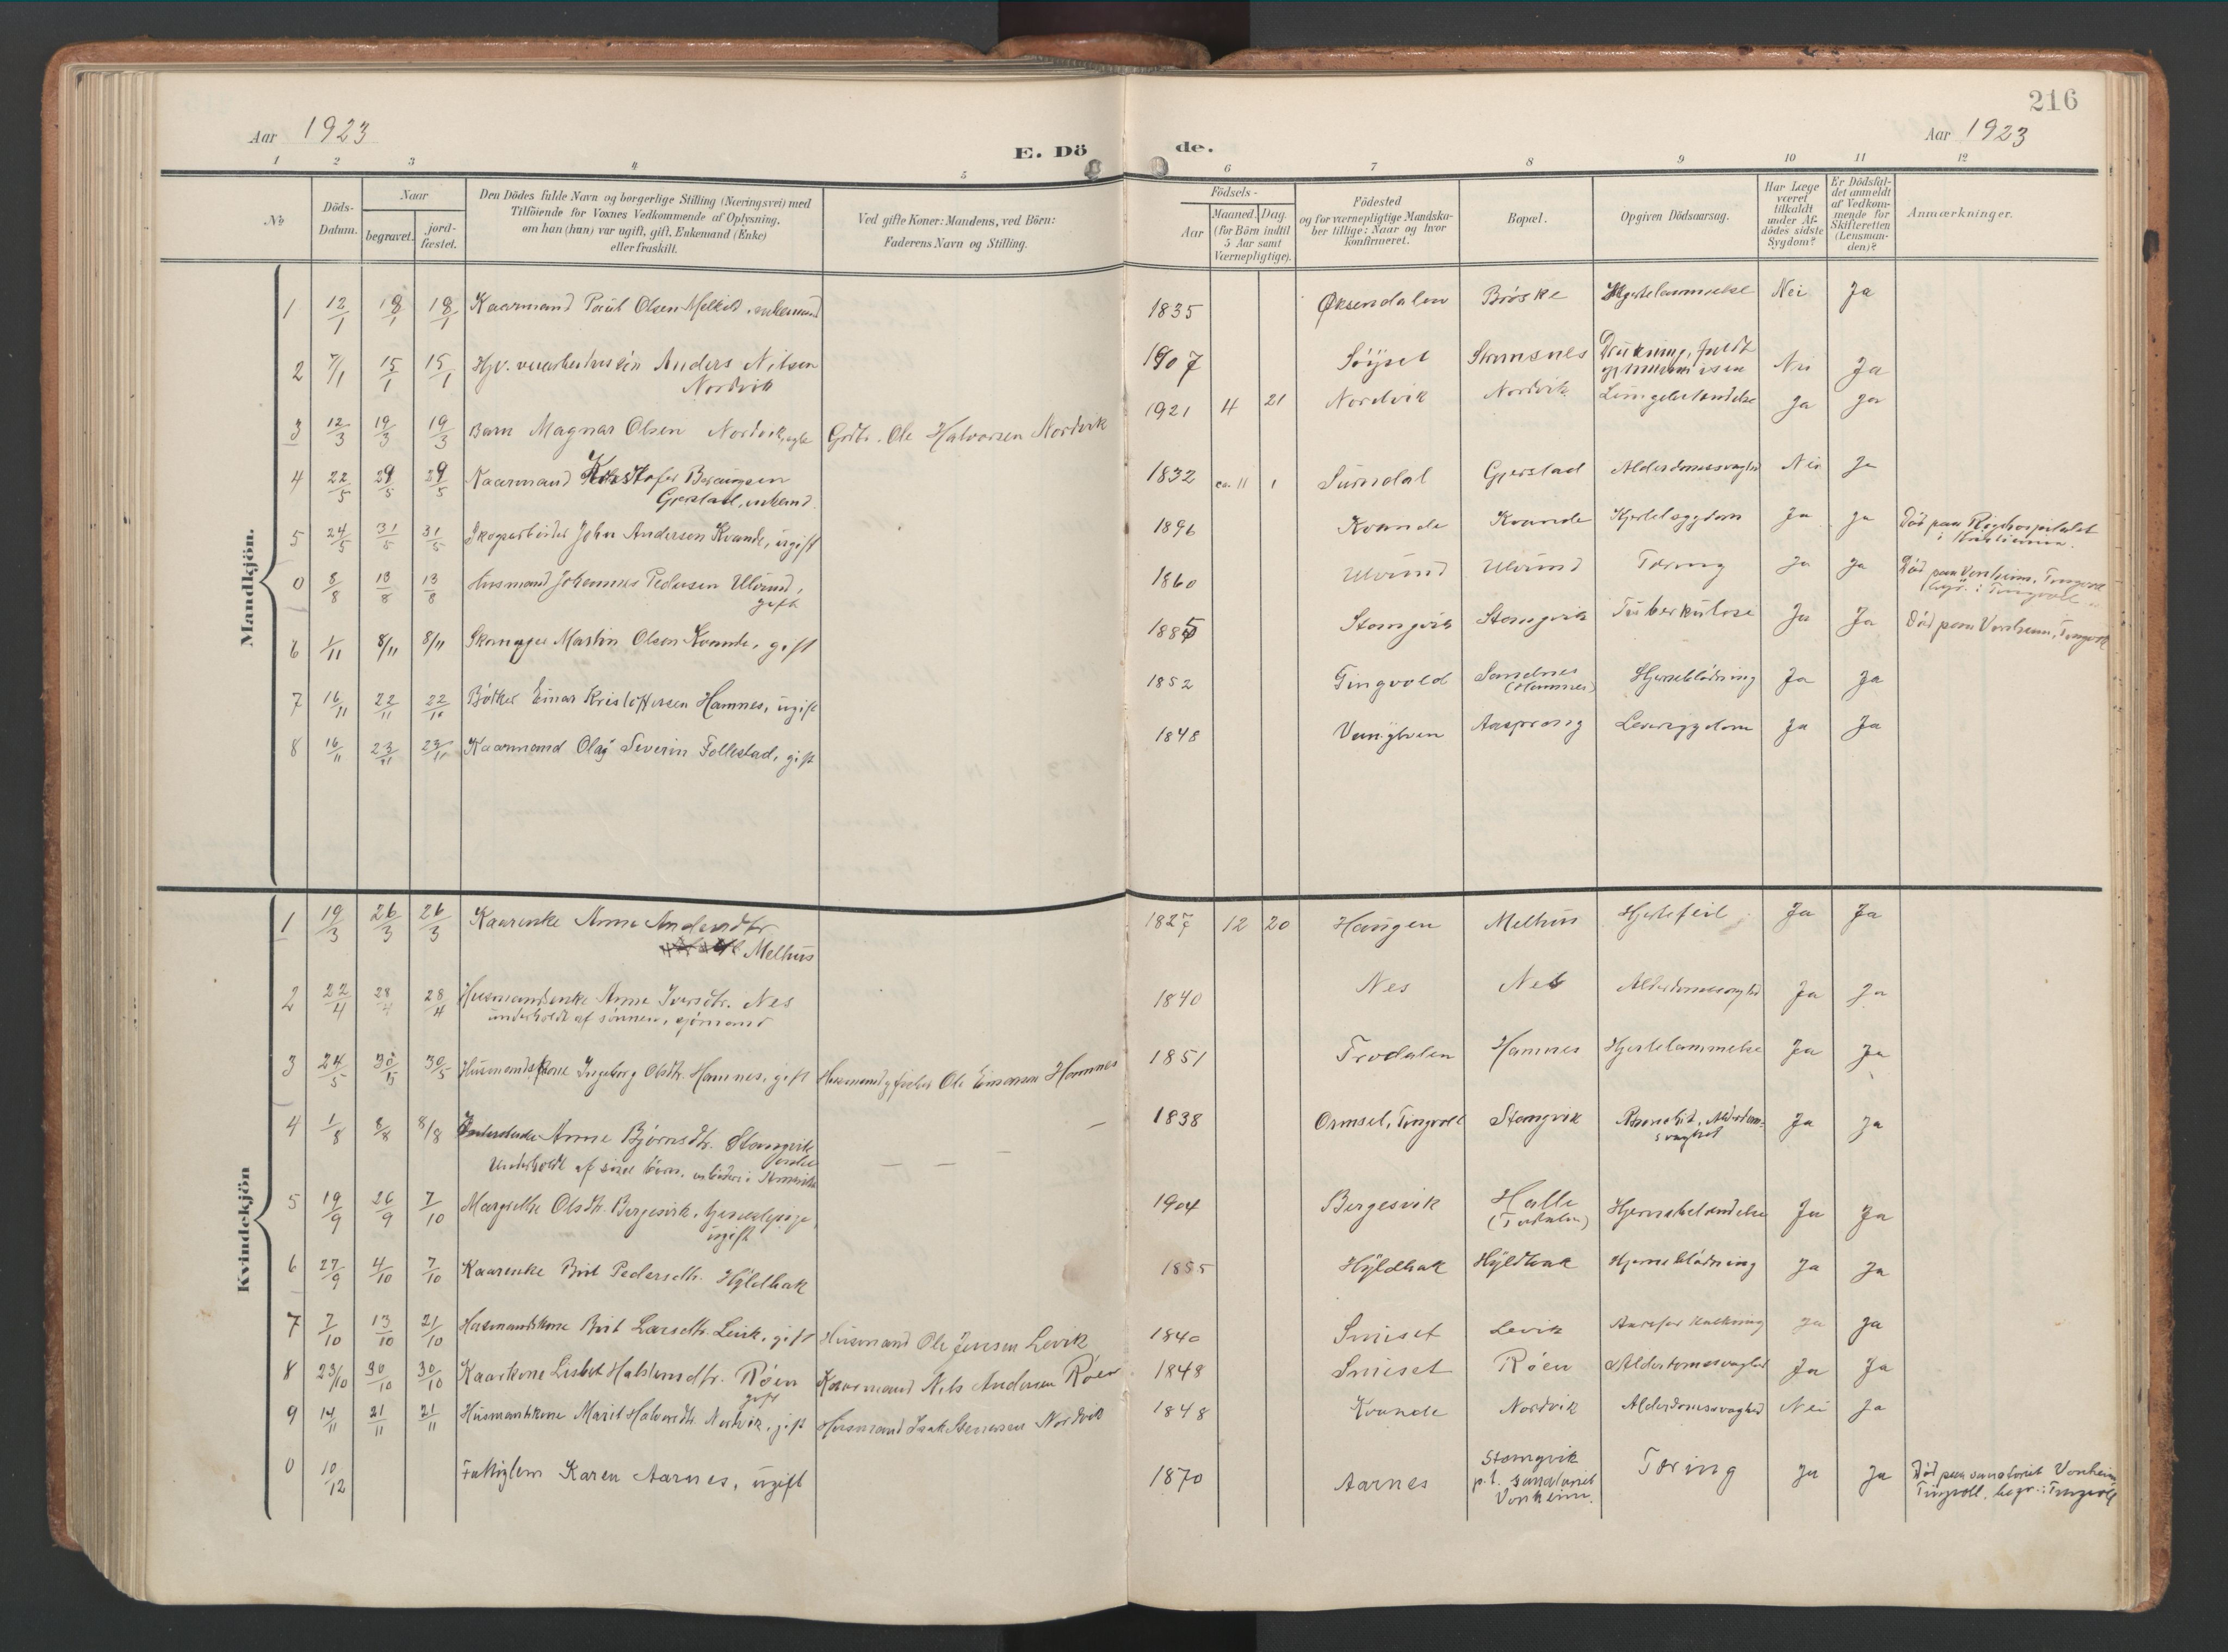 216
Aar 1923
E. Dö de.
Aar 1923
1 2 3 4 5 6 7 8 9 10 11 12
No
Döds-
Datum.
Naar
begravet.
jord-
fæstet.
Den Dödes fulde Navn og borgerlige Stilling (Næringsvei) med
Tilföiende for Voxnes Vedkommende af Oplysning,
om han (hun) var ugift, gift, Enkemand (Enke)
eller fraskilt.
Ved gifte Koner: Mandens, ved Börn:
Faderens Navn og Stilling.
Födsels-
Aar
Maaned. Dag.
(for Börn indtil
5 Aar samt
Værnepligtige).
Födested
og for værnepligtige Mandska-
ber tillige: Naar og hvor
konfirmeret.
Bopæl.
Opgiven Dödsaarsag.
Har Læge
været
tilkaldt
under Af-
dödes sidste
Sygdom?
Er Dödsfal-
det anmeldt
af Vedkom-
mende for
Skifteretten
(Lensman-
den)?
Anmærkninger.
Mandkjön.
1 12/1 18/1 18/1 Kaarmand Paul Olsen Melkild, enkemand 1835 Øksendalen Böske Hjertelammelse Nei Ja
2 7/1 15/1 15/1 Anders Nilsen
Nordvik 1907 Söyset Strømsnes Drukning, faldt
gjennem isen Nei Ja
3 12/3 19/3 19/3 Barn Magnar Olsen Nordvik, Grdbr. Ole Halvorsen Nordvik 1921 4 21 Nordvik Nordvik Lungebetændelse Ja Ja
4 22/5 29/5 29/5 Kaarmand Kristofer
Gjerstad, enkemd. 1832 ca. 11 1 Surndal Gjerstad Alderdomssvaghed Nei Ja
5 24/5 31/5 31/5 Skogsarbeider John Andersen Kvande, ugift 1896 Kvande Kvande Hjertesygdom Ja Ja Död paa Rigshospitalet
i Kristiania.
0 8/8 13/8 13/8 Husmand Johannes Pedersen Ulvund,
gift 1860 Ulvund Ulvund Tæring Ja Ja Död paa Vonheim, Tingvoll
begr. i Tingvoll
6 1/11 8/11 8/11 Skomager Martin Olsen Kvande, gift 1885 Stangvik Stangvik Tuberkulose Ja Ja Död paa Vonheim, Tingvoll
7 16/11 22/11 22/11 Bötker Einar Kristoffersen Hamnes, ugift 1852 Tingvold Sandnes
(Hamnes) Hjerneblödning Ja Ja
8 16/11 23/11 23/11 Kaarmand Olaf Severin Follestad, gift 1848 Aasprong Leversygdom Ja Ja
Kvindekjön
1 19/3 26/3 26/3 Kaarenke Anne Andersdtr.
Melhus 1827 12 20 Haugen Melhus Hjertefeil Ja Ja
2 22/4 28/4 28/4 Husmandsenke Anne Iversdtr. Nes
underholdt af sönnen, sjömand 1840 Nes Nes Alderdomssvaghed Ja Ja
3 24/5 30/5 30/5 Husmandskone Ingeborg Olsdtr. Hamnes, gift Husmand og fisker Ole Einarsen Hamnes 1851 Trodalen Hamnes Hjertelammelse Ja Ja
4 1/8 8/8 8/8 Anne Björnsdtr. Stangvik
enke
Underholdt af sine börn, arbeidere i Amerika 1838 Ormset, Tingvoll Stangvik Alderdoms-
svaghet Ja Ja
5 19/9 26/9 7/10 Margrethe Olsdtr. Bergesvik, tjenestepige,
ugift 1904 Bergesvik Halle
(Todalen) Hjernebetændelse Ja Ja
6 27/9 4/10 7/10 Kaarenke Brit Pedersdtr. Hyldbak 1835 Hyldbak Hyldbak Hjerneblödning Ja Ja
7 7/10 13/10 21/10 Husmandskone Brit Larsdtr. Levik, gift Husmand Ole Jensen Levik 1840 Snuset Levik Aareforkalkning Ja Ja
8 23/10 30/10 30/10 Kaarkone Lisbet Halstensdtr. Röen
gift Kaarmand Nils Andersen Röen 1848 Snuset Röen Alderdomssvaghed Ja Ja
9 14/11 21/11 21/11 Husmandskone Marit Halvorsdtr. Nordvik, gift Husmand Isak Nordvik 1848 Kvande Nordvik Alderdomssvaghed Nei Ja
0 10/12 Fattiglem Karen Aarnes, ugift 1870 Aarnes Stangvik
p.t. sanatoriet
Vonheim. Tæring Ja Ja Död paa sanatoriet Vonheim
Tingvoll, begr. i Tingvoll